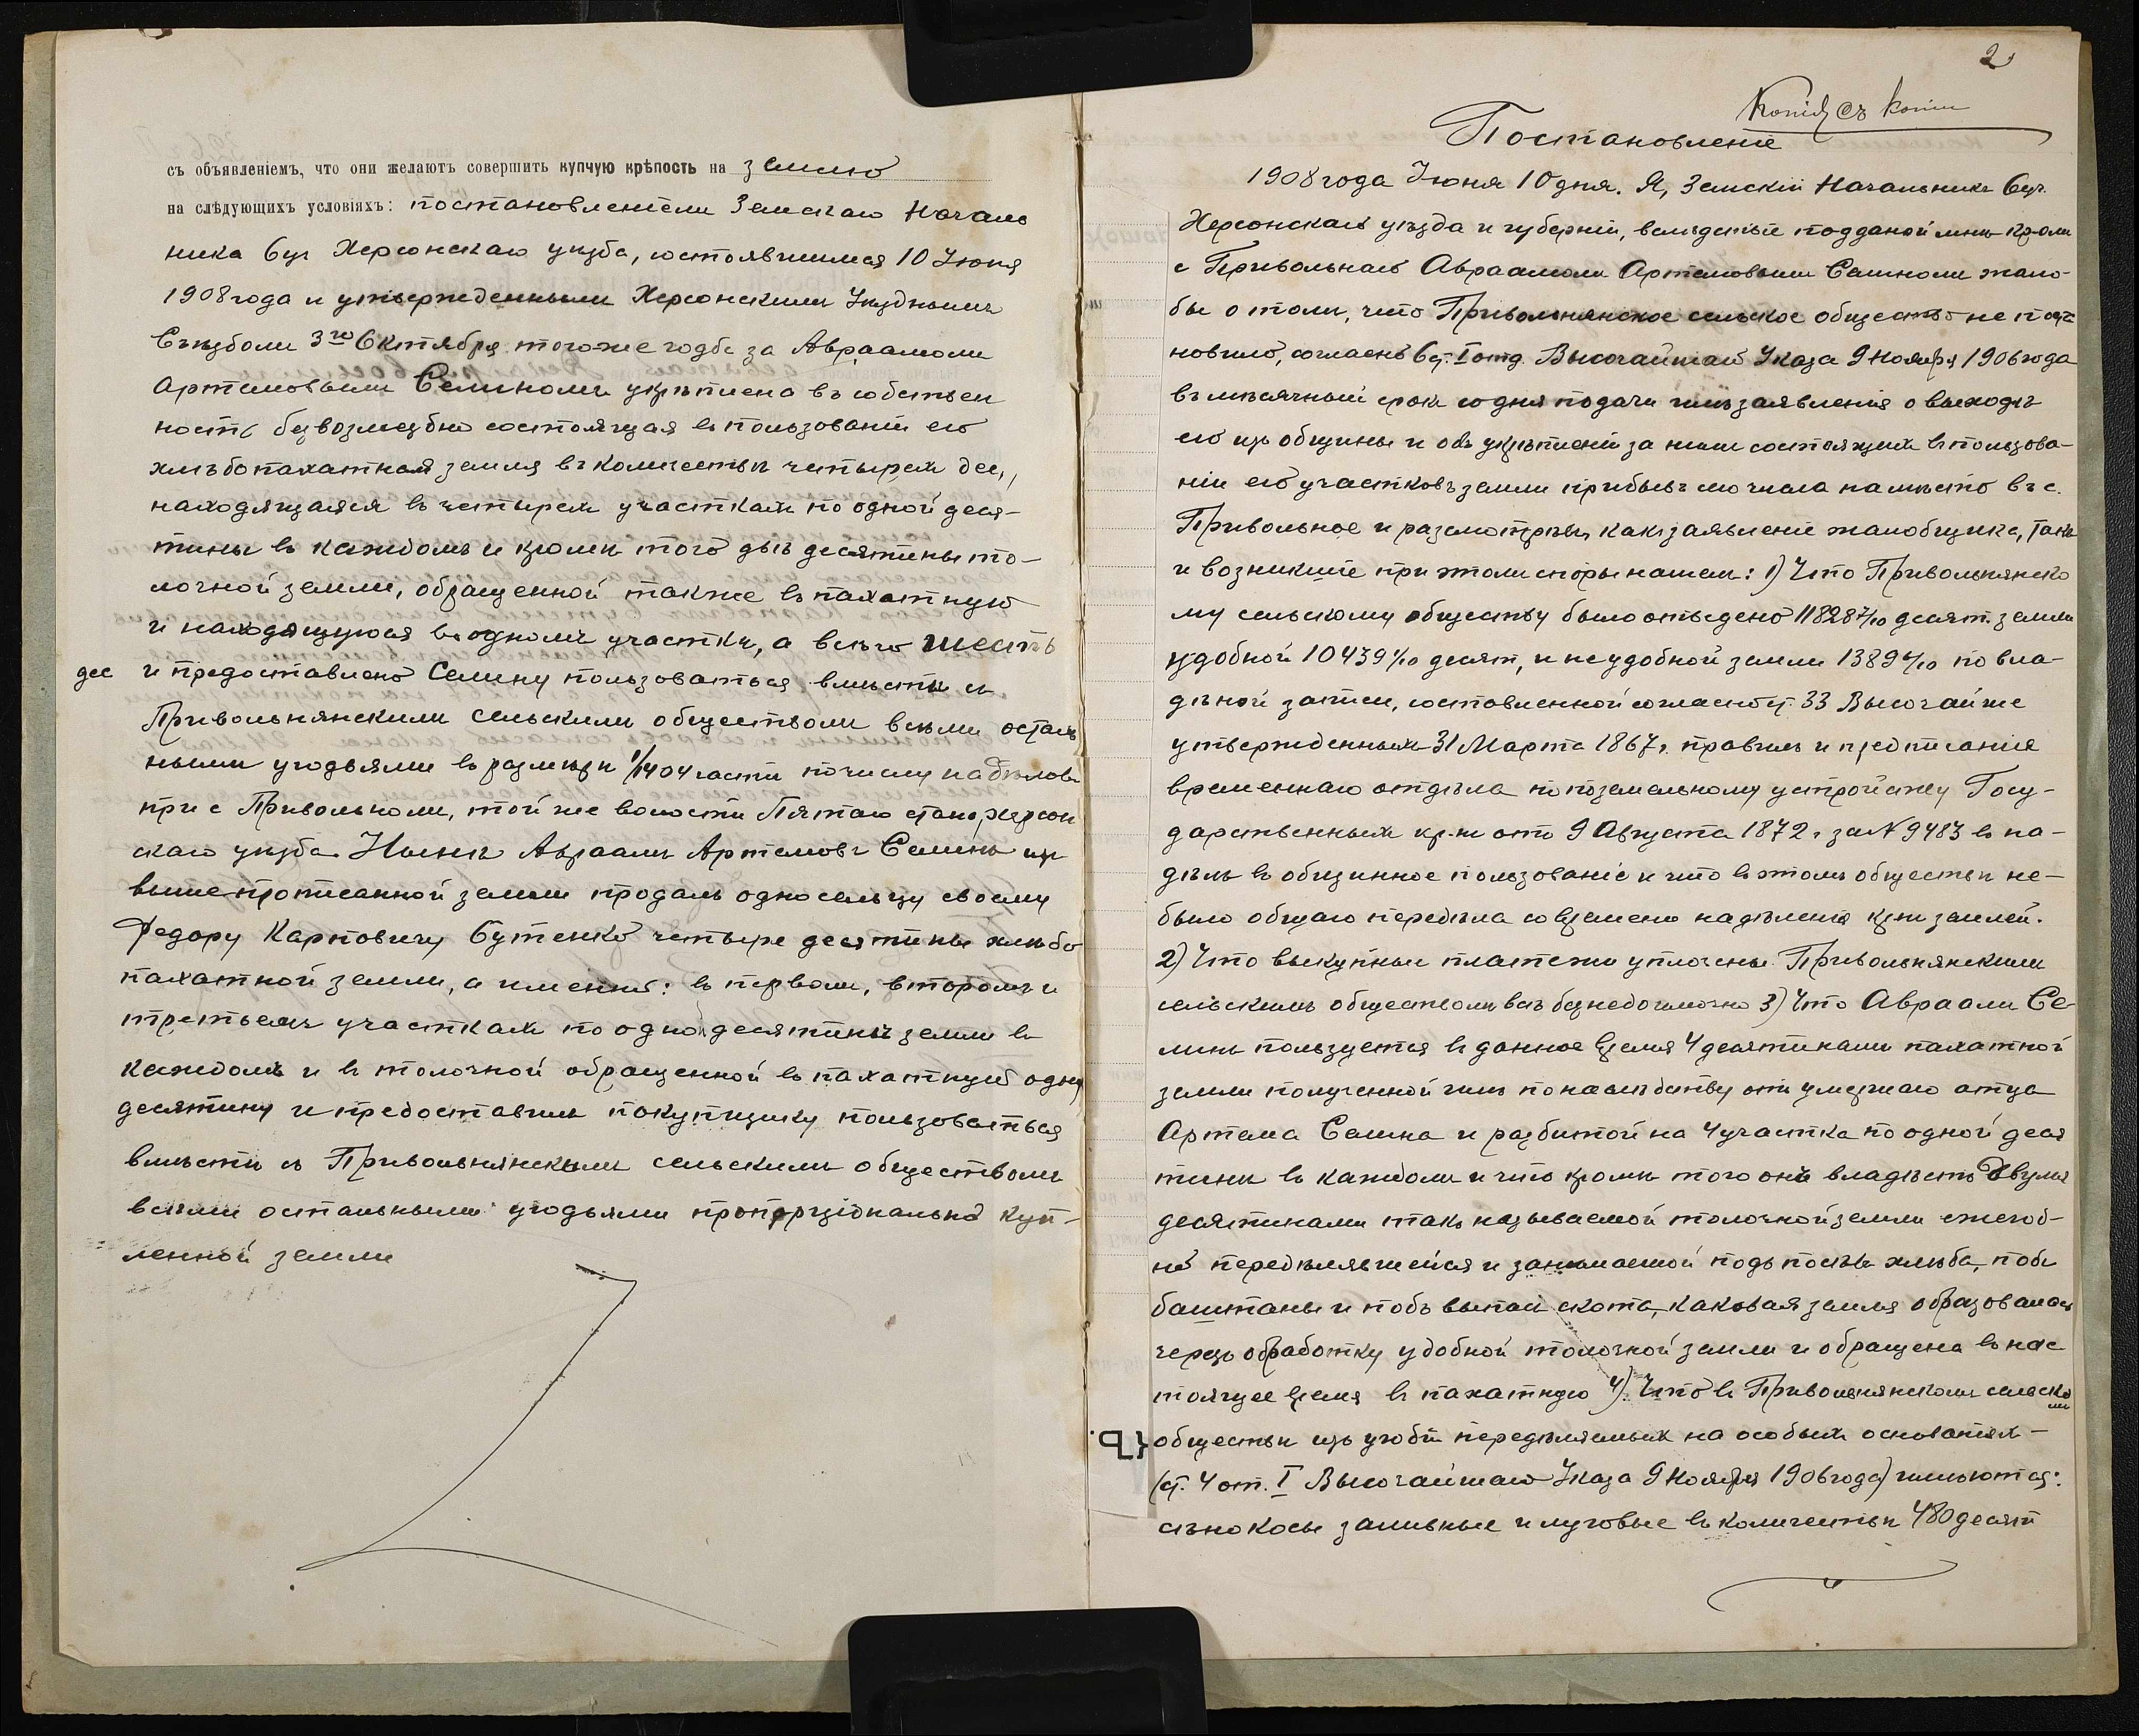 съ объявленіемъ, что они желаютъ совершить купчую крѣпость на землю
на слѣдующихъ условіяхъ: постановленіемъ Земскаго Началь
ника 6 уч Херсонскаго уѣзда, состоявшимся 10 Іюня
1908 года и утвержденнымъ Херсонскимъ Уѣзднымъ
Съѣздомъ 3го Октября того же года за Авраамомъ
Артемовымъ Семиномъ укрѣплена въ собствен
ность безвозмездно состоящая въ пользованіи его
хлѣбопахатная земля въ количествѣ четырехъ дес,
находящаяся въ четырехъ участкахъ по одной деся-
тины въ каждомъ и кромѣ того двѣ десятины то-
лочной земли, обращенной также въ пахатную
и находящуюся въ одномъ участкѣ, а всего шесть
дес и предоставлено Семину пользоваться вмѣстѣ съ
Привольнянскимъ сельскимъ обществомъ всѣми осталь
ными угодьями въ размѣрѣ 1/1404 части по числу надѣловъ
при с Привольномъ, той же волости Пятаго стана, Херсон
скаго уѣзда. Нынѣ Авраамъ Артемовъ Семинъ изъ
вышепрописанной земли продалъ односельцу своему
Федору Карповичу Бутенко четыре десятины хлѣбо
пахатной земли, а именно: въ первомъ, второмъ и
третьемъ участкахъ по одной десятинѣ земли въ
каждомъ и въ толочной обращенной въ пахатную одну
десятину и предоставилъ покупщику пользоваться
вмѣстѣ съ Привольнянскимъ сельскимъ обществомъ
всѣми остальными угодьями пропорціонально куп-
ленной земли
2
Копія съ копіи
Постановленіе
1908 года Іюня 10 дня. Я, Земскій Начальникъ 6 уч.
Херсонскаго уѣзда и губерніи, вслѣдствіе поданой мнѣ кр-омъ
с Привольнаго Авраамомъ Артемовымъ Семиномъ жало-
бы о томъ, что Привольнянское сельское общество не поста
новило, согласно 6 ст. I отд. Высочайшаго Указа 9 Ноября 1906 года
въ мѣсячный срокъ со дня подачи имъ заявленія о выходѣ
его изъ общины и объ укрѣпленіи за нимъ состоящихъ въ пользова-
ніи его участковъ земли прибылъ сего числа на мѣсто въ с.
Привольное и разсмотрѣвъ какъ заявленіе жалобщика, такъ
и возникшіе при этомъ споры нашелъ: 1) Что Привольнянско
му сельскому обществу было отведено 11828 7/10 десят. земли
удобной 10439 3/10 десят, и неудобной земли 1389 4/10 по вла-
дѣнной записи, составленной согласно ст. 33 Высочайше
утвержденныхъ 31 Марта 1867 г. правилъ и предписанія
временнаго отдѣла по поземельному устройству Госу-
дарственныхъ кр-нъ отъ 9 Августа 1872 г за N 9483 въ на-
дѣлъ въ общинное пользованіе и что въ этомъ обществѣ не-
было общаго передѣла со времени надѣленія кр-нъ землей.
2) Что выкупные платежи уплочены Привольнянскимъ
сельскимъ обществомъ всѣ безнедоимочно 3) Что Авраамъ Се-
минъ пользуется въ данное время 4 десятинами пахатной
земли полученной имъ по наслѣдству отъ умершаго отца
Артема Семина и разбитой на 4 участка по одной деся
тинѣ въ каждомъ и что кромѣ того онъ владѣетъ двумя
десятинами такъ называемой толочной земли ежегод-
но передѣлявшейся и занимаемой подъ посѣвъ хлѣба, подъ
баштаны и подъ выпасъ скота, каковая земля образовалась
черезъ обработку удобной толочной земли и обращена въ нас
тоящее время въ пахатную 4). Что въ Привольнянскомъ сельско
мъ
обществѣ изъ угодій передѣляемыхъ на особыхъ основаніяхъ-
(ст. 4 от. I Высочайшаго Указа 9 Ноября 1906 года) имѣются:
сѣнокосы заливные и луговые въ количествѣ 480 десят